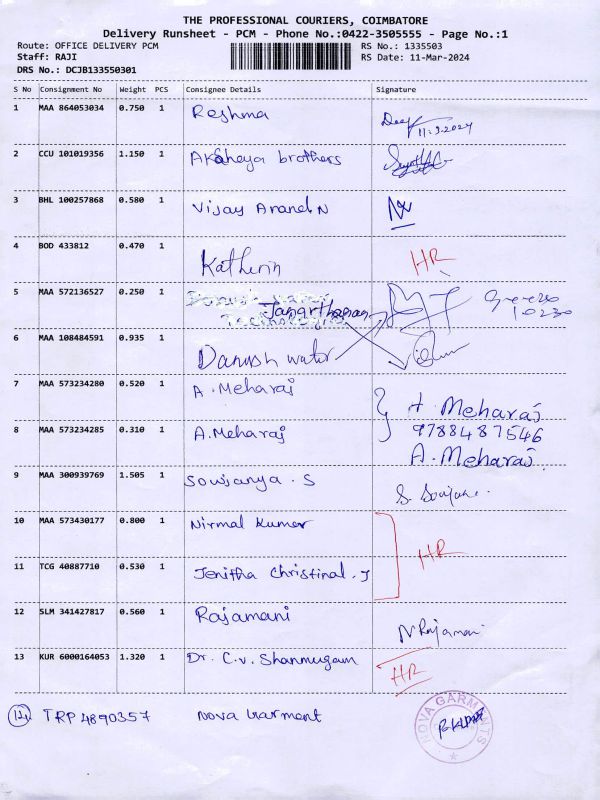 THE PROFESSIONAL COURIERS, COIMBATORE
Delivery Runsheet - PCM - Phone No.:0422-3505555 - Page No.:1
Route: OFFICE DELIVERY PCM RS No.: 1335503
Staff: RAJI RS Date: 11-Mar-2024
DRS No.: DCJB133550301
S No Consignment No Weight PCS Consignee Details Signature
1 MAA 864053034 0.750 1 Reshma
11.3.2024
2 CCU 101019356 1.150 1 Akshaya brothers
3 BHL 100257868 0.580 1 Vijay Anand N
4 BOD 433812 0.470 1 Katherin HR
5 MAA 572136527 0.250 1 Janarthanan
6 MAA 108484591 0.935 1 Danush water
7 MAA 573234280 0.520 1 A. Meharaj A. Meharaj
9788487546
8 MAA 573234285 0.310 1 A. Meharaj A. Meharaj
9 MAA 300939769 1.505 1 Sowjanya . S
10 MAA 573430177 0.800 1 Nirmal Kumar HR
11 TCG 40887710 0.530 1 Jenitha Christinal . J
12 SLM 341427817 0.560 1 Rajamani N Rajamani
13 KUR 6000164053 1.320 1 Dr. C.V. Shanmugam HR
14 TRP 4890357 Nova Garment
NOVA GARMENTS